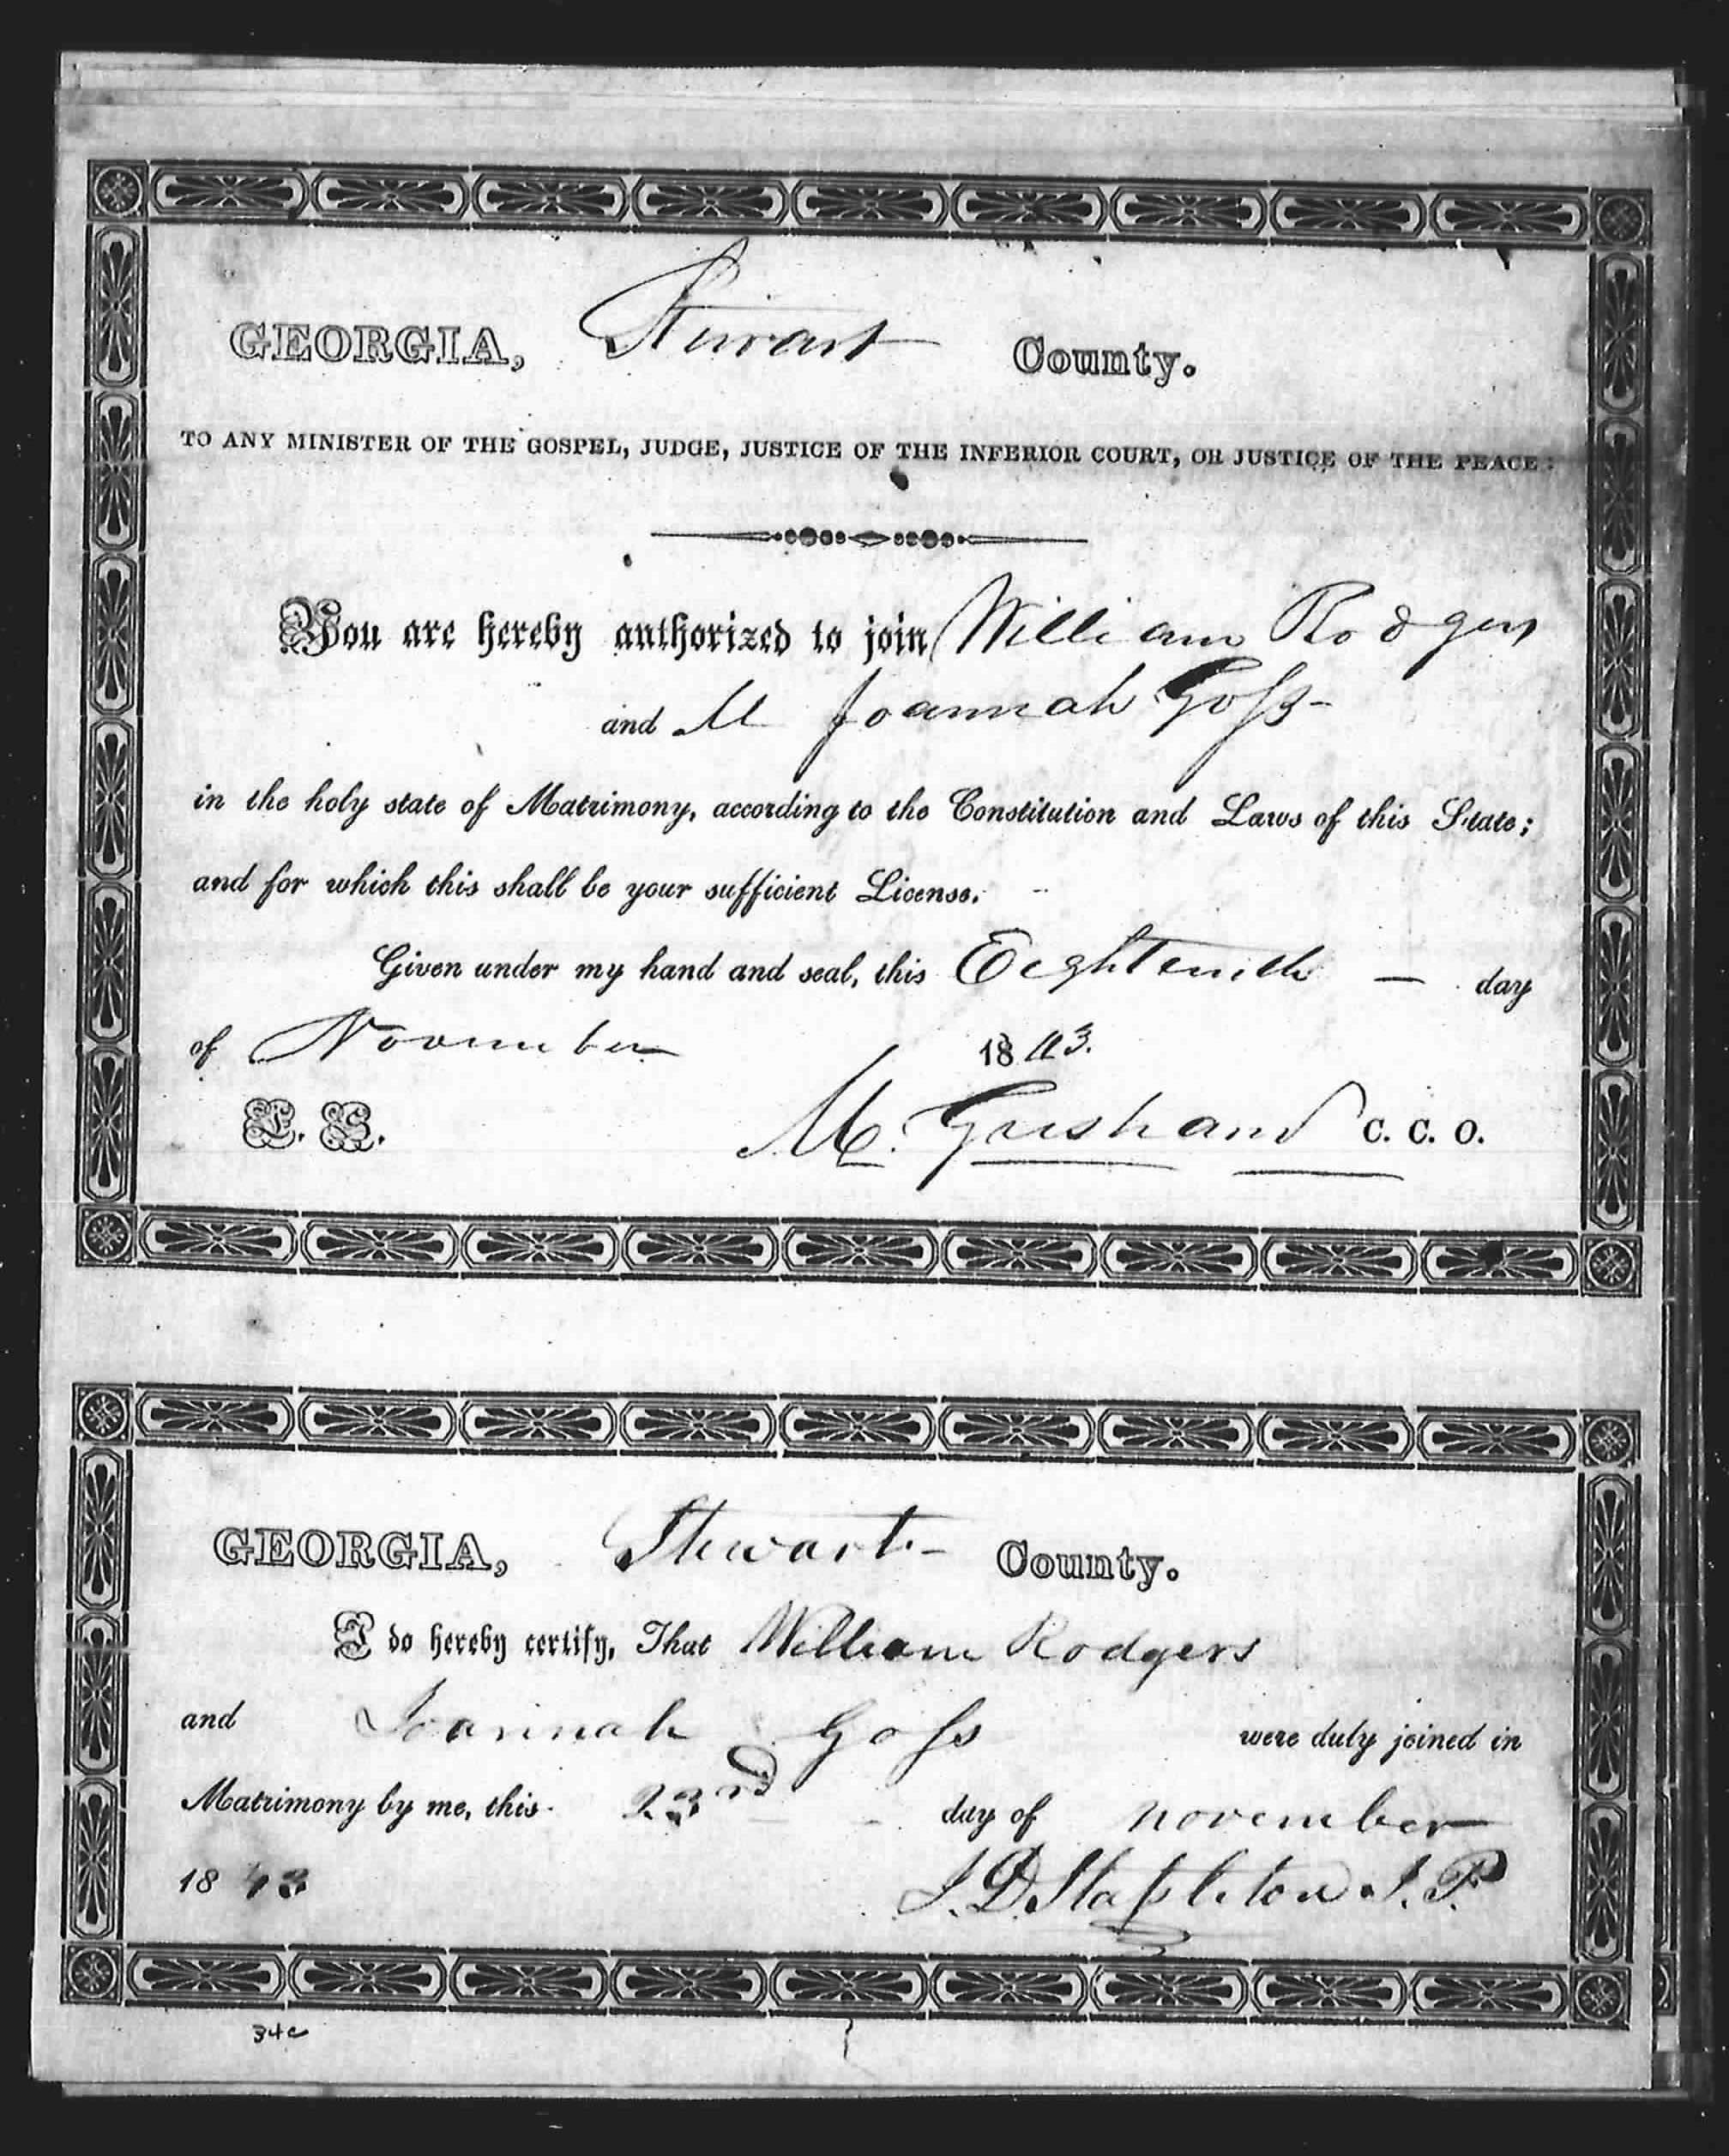 GEORGIA, Stewart County.
TO ANY MINISTER OF THE GOSPEL, JUDGE, JUSTICE OF THE INFERIOR COURT, OR JUSTICE OF THE PEACE:
You are hereby authorized to join William Rodgers
and M Joannah Goſs -
in the holy state of Matrimony, according to the Constitution and Laws of this State;
and for which this shall be your sufficient License.
Given under my hand and seal, this Eightenth — day
of November 1843.
L. S. M. Gresham C. C. O.
GEORGIA, Stewart - County.
I do hereby certify, That William Rodgers
and Joannah Goſs were duly joined in
Matrimony by me, this 23rd day of november
1843 J. D. Stapleton J. P.